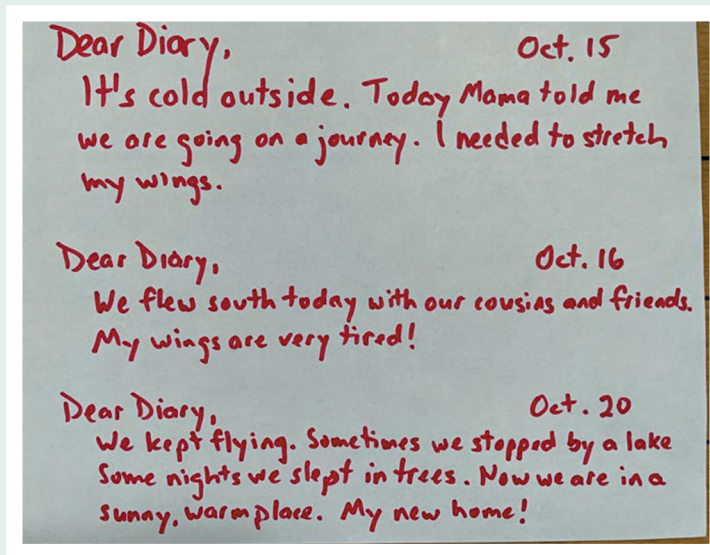 Dear Diary, Oct. 15
It's cold outside. Today Mama told me
we are going on a journey. I needed to stretch
my wings.
Dear Diary, Oct. 16
We flew south today with our cousins and friends.
My wings are very tired!
Dear Diary, Oct. 20
We kept flying. Sometimes we stopped by a lake
Some nights we slept in trees. Now we are in a
sunny, warm place. My new home!